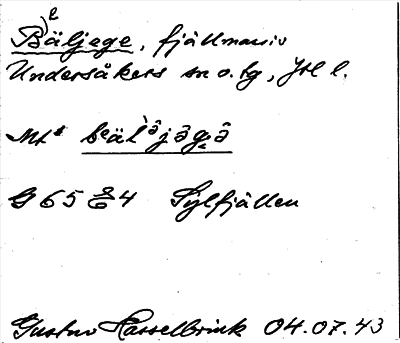 Bäljege, fjällmassiv
Undersåkers sn o. tg, Jtl l.
Mts beäl'əjəgə
G 65 8/6 4 Sylfjällen
Gustav Hasselbrink 04.07.43